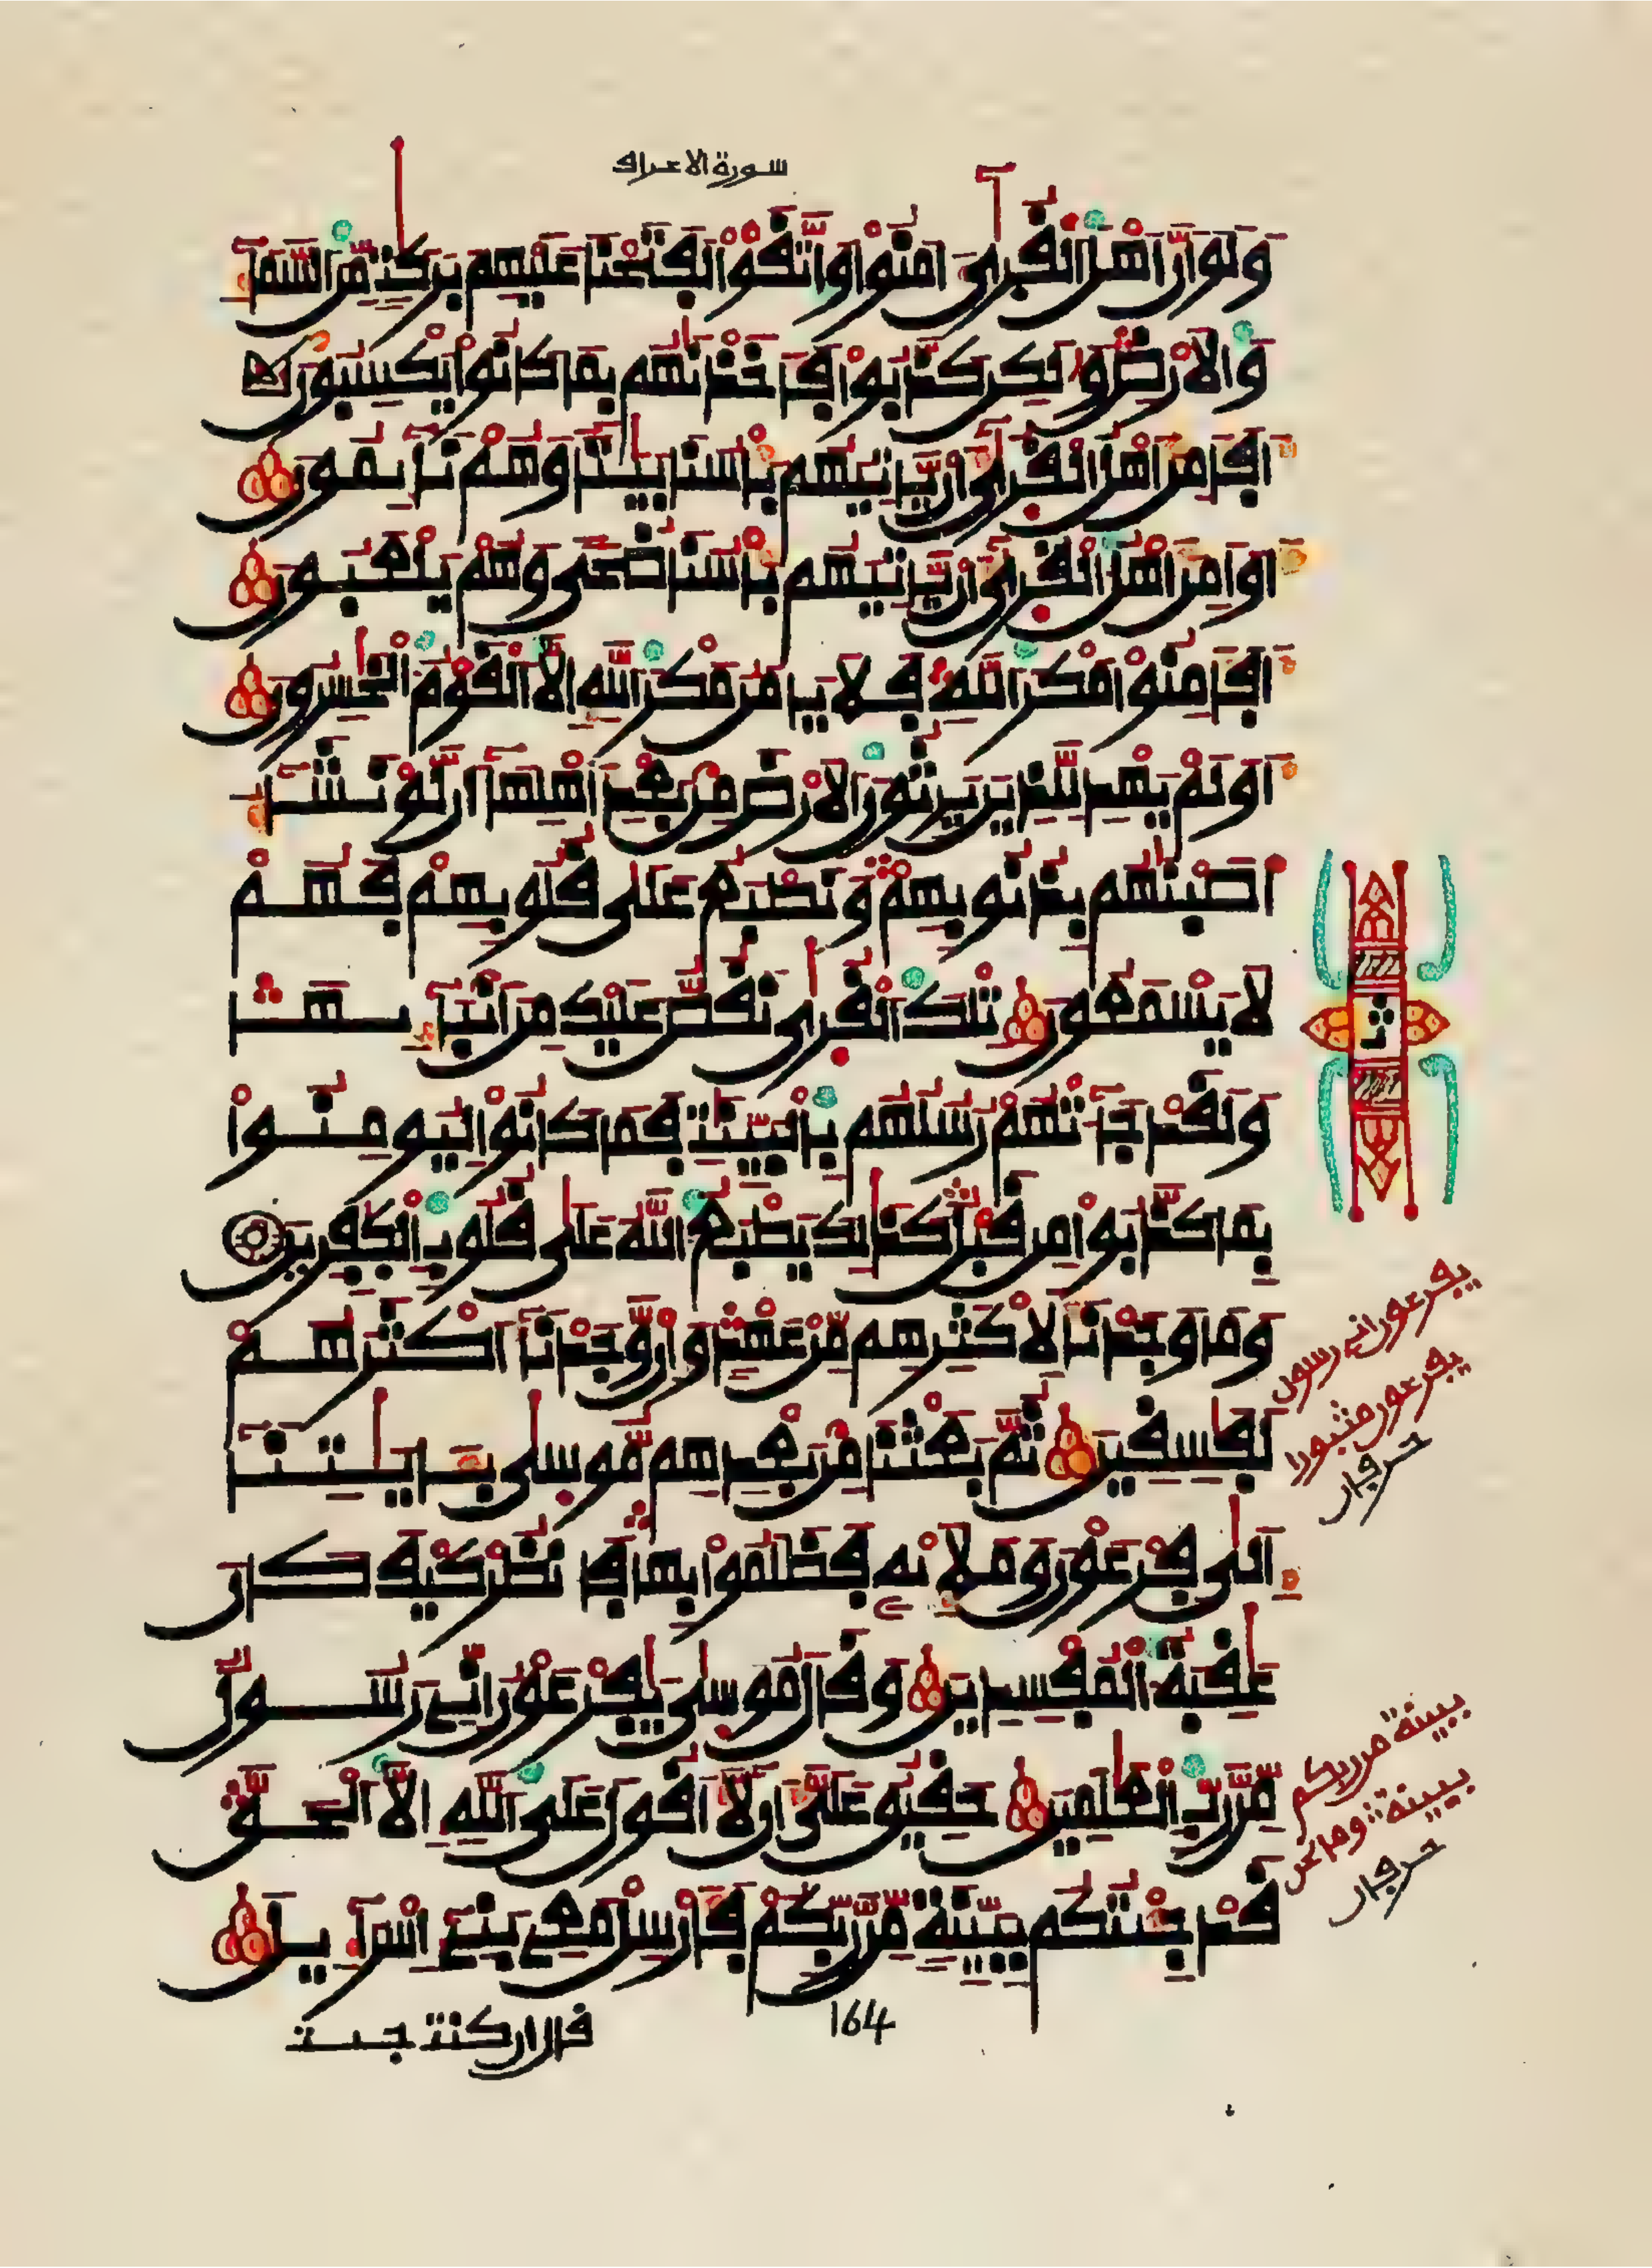 سورة الاعراف
وَلَوَ اَنَّ أَهْلَ اَلْقُرَىٰ ءَامَنُواْ وَاتَّقَوْاْ لَفَتَحْنَا عَلَيْهِم بَرَكَٰتٖ مِّنَ اَلسَّمَآءِ
وَالَارْضِ وَلَٰكِن كَذَّبُواْ فَأَخَذْنَٰهُم بِمَا كَانُواْ يَكْسِبُونَ
أَفَأَمِنَ أَهْلُ اَلْقُرَىٰ أَنْ يَّاتِيَهُم بَأْسُنَا بَيَٰتاٗ وَهُمْ نَآئِمُونَ
أَوَ اَمِنَ أَهْلُ اَلْقُرَىٰ أَنْ يَّاتِيَهُم بَأْسُنَا ضُحىٗ وَهُمْ يَلْعَبُونَ
أَفَأَمِنُواْ مَكْرَ اَللَّهِ فَلَا يَامَنُ مَكْرَ اَللَّهِ إِلَّا اَلْقَوْمُ اُلْخَٰسِرُونَ
أَوَلَمْ يَهْدِ لِلَّذِينَ يَرِثُونَ اَلَارْضَ مِنۢ بَعْدِ أَهْلِهَآ أَن لَّوْ نَشَآءُ
أَصَبْنَٰهُم بِذُنُوبِهِمْ وَنَطْبَعُ عَلَىٰ قُلُوبِهِمْ فَهُمْ
لَا يَسْمَعُونَ تِلْكَ اَلْقُرَىٰ نَقُصُّ عَلَيْكَ مِنَ اَنۢبَآئِهَا
وَلَقَدْ جَآءَتْهُمْ رُسُلُهُم بِالْبَيِّنَٰتِ فَمَا كَانُواْ لِيُومِنُواْ
بِمَا كَذَّبُواْ مِن قَبْلُ كَذَٰلِكَ يَطْبَعُ اُللَّهُ عَلَىٰ قُلُوبِ اِلْكَٰفِرِينَ
وَمَا وَجَدْنَا لِأَكْثَرِهِم مِّنْ عَهْدٖ وَإِنْ وَّجَدْنَآ أَكْثَرَهُمْ
لَفَٰسِقِينَ ثُمَّ بَعَثْنَا مِنۢ بَعْدِهِم مُّوسَىٰ بِـَٔايَٰتِنَآ
إِلَىٰ فِرْعَوْنَ وَمَلَإِيْهِۦ فَظَلَمُواْ بِهَا فَانظُرْ كَيْفَ كَانَ
عَٰقِبَةُ اُلْمُفْسِدِينَ وَقَالَ مُوسَىٰ يَٰفِرْعَوْنُ إِنِّے رَسُولٞ
مِّن رَّبِّ اِلْعَٰلَمِينَ حَقِيقٌ عَلَيَّ أَن لَّآ أَقُولَ عَلَى اَللَّهِ إِلَّا اَلْحَقَّ
قَدْ جِئْتُكُم بِبَيِّنَةٖ مِّن رَّبِّكُمْ فَأَرْسِلْ مَعِے بَنِےٓ إِسْرَآءِيلَ
164
قال ان كنت جيت
ثمن
يفرعون انے رسول
يفرعون مثبورا
حرفان
ببينة من ربكم
ببينة وما نحن
حرفان